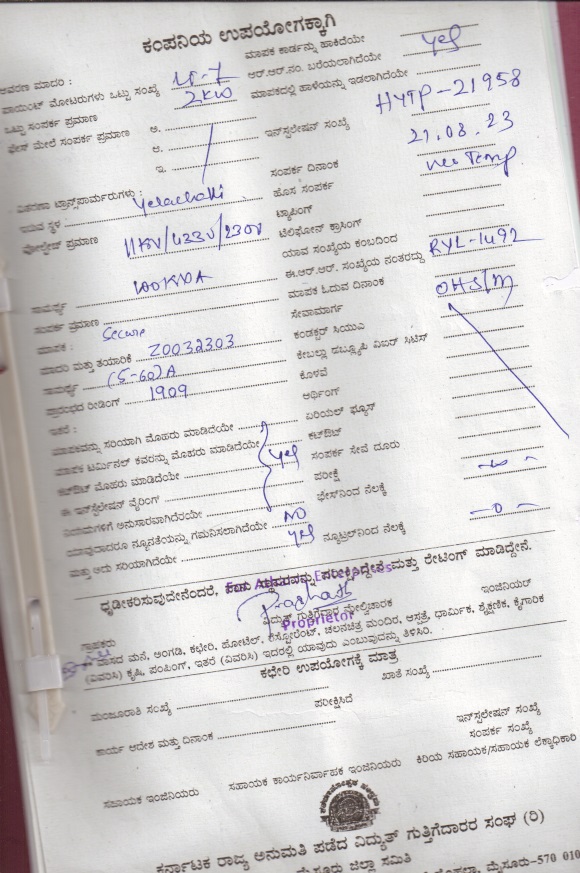 ಕಂಪನಿಯ ಉಪಯೋಗಕ್ಕಾಗಿ
ಮಾಪಕ ಕಾರ್ಡನ್ನು ಹಾಕಿದೆಯೇ yes
ಆವರಣ ಮಾದರಿ : LT-7 ಆರ್.ಆರ್.ನಂ. ಬರೆಯಲಾಗಿದೆಯೇ
ಪಾಯಿಂಟ್ ಮೋಟರುಗಳು ಒಟ್ಟು ಸಂಖ್ಯೆ 2KW ಮಾಪಕದಲ್ಲಿ ಹಾಳೆಯನ್ನು ಇಡಲಾಗಿದೆಯೇ
ಒಟ್ಟು ಸಂಪರ್ಕ ಪ್ರಮಾಣ HYTP-21958
ಫೇಸ್ ಮೇಲೆ ಸಂಪರ್ಕ ಪ್ರಮಾಣ ಅ. ಇನ್ಸ್ಟಲೇಷನ್ ಸಂಖ್ಯೆ
ಆ. 21.08.23
ಇ. ಸಂಪರ್ಕ ದಿನಾಂಕ
ವಿತರಣಾ ಟ್ರಾನ್ಸ್‌ಫಾರ್ಮರುಗಳು : ಹೊಸ ಸಂಪರ್ಕ
ಇರುವ ಸ್ಥಳ Yelachalli ಟ್ಯಾಪಿಂಗ್
ವೋಲ್ಟೇಜ್ ಪ್ರಮಾಣ 11KV/433V/230V ಟೆಲಿಫೋನ್ ಕ್ರಾಸಿಂಗ್
ಯಾವ ಸಂಖ್ಯೆಯ ಕಂಬದಿಂದ
ಸಾಮರ್ಥ್ಯ 100KVA ಈ.ಆರ್.ಆರ್. ಸಂಖ್ಯೆಯ ನಂತರದ್ದು RYL-1492
ಸಂಪರ್ಕ ಪ್ರಮಾಣ ಮಾಪಕ ಓದುವ ದಿನಾಂಕ
ಮಾಪಕ : Secure ಸೇವಾಮಾರ್ಗ OHS/M
ಮಾದರಿ ಮತ್ತು ತಯಾರಿಕೆ Z0032303 ಕಂಡಕ್ಟರ್ ಸಿಯುಎ
ಸಾಮರ್ಥ್ಯ (5-60)A
ಪ್ರಾರಂಭದ ರೀಡಿಂಗ್ 1909 ಕೊಳವೆ
ಇತರೆ : ಅರ್ಥಿಂಗ್
ಮಾಪಕವನ್ನು ಸರಿಯಾಗಿ ಮೊಹರು ಮಾಡಿದೆಯೇ ಏರಿಯಲ್ ಫ್ಯೂಸ್
ಮಾಪಕ ಟರ್ಮಿನಲ್ ಕವರನ್ನು ಮೊಹರು ಮಾಡಿದೆಯೇ ಕಟ್‌ಔಟ್
ಕಟ್‌ಔಟ್ ಮೊಹರು ಮಾಡಿದೆಯೇ yes ಸಂಪರ್ಕ ಸೇವೆ ದೂರು
ಈ ಇನ್ಸ್ಟಲೇಷನ್ ವೈರಿಂಗ್ ಪರೀಕ್ಷೆ
ನಿಯಮಗಳಿಗೆ ಅನುಸಾರವಾಗಿದೆಯೇ ಫೇಸ್‌ನಿಂದ ನೆಲಕ್ಕೆ
ಯಾವುದಾದರೂ ನ್ಯೂನತೆಯನ್ನು ಗಮನಿಸಲಾಗಿದೆಯೇ NO
ಮತ್ತು ಅದು ಸರಿಯಾಗಿದೆಯೇ yes ನ್ಯೂಟ್ರಲ್‌ನಿಂದ ನೆಲಕ್ಕೆ -0-
ಧೃಡೀಕರಿಸುವುದೇನೆಂದರೆ, ನಾನು ಸ್ಥಾವರವನ್ನು ಪರೀಕ್ಷಿಸಿದ್ದೇನೆ ಮತ್ತು ರೇಟಿಂಗ್ ಮಾಡಿದ್ದೇನೆ.
ಗ್ರಾಹಕರು ವಿದ್ಯುತ್ ಗುತ್ತಿಗೆದಾರ ಮೇಲ್ವಿಚಾರಕ ಇಂಜಿನಿಯರ್
Proprietor
ವಾಸದ ಮನೆ, ಅಂಗಡಿ, ಕಛೇರಿ, ಹೋಟೆಲ್, ರೆಸ್ಟೋರೆಂಟ್, ಚಲನಚಿತ್ರ ಮಂದಿರ, ಆಸ್ಪತ್ರೆ, ಧಾರ್ಮಿಕ, ಶೈಕ್ಷಣಿಕ, ಕೈಗಾರಿಕೆ
(ವಿವರಿಸಿ) ಕೃಷಿ, ಪಂಪಿಂಗ್, ಇತರೆ (ವಿವರಿಸಿ) ಇದರಲ್ಲಿ ಯಾವುದು ಎಂಬುವುದನ್ನು ತಿಳಿಸಿರಿ.
ಕಛೇರಿ ಉಪಯೋಗಕ್ಕೆ ಮಾತ್ರ
ಮಂಜೂರಾತಿ ಸಂಖ್ಯೆ ಖಾತೆ ಸಂಖ್ಯೆ
ಪರೀಕ್ಷಿಸಿದೆ
ಕಾರ್ಯ ಆದೇಶ ಮತ್ತು ದಿನಾಂಕ ಇನ್‌ಸ್ಟಲೇಷನ್ ಸಂಖ್ಯೆ
ಸಂಪರ್ಕ ಸಂಖ್ಯೆ
ಸಹಾಯಕ ಇಂಜಿನಿಯರು ಸಹಾಯಕ ಕಾರ್ಯನಿರ್ವಾಹಕ ಇಂಜಿನಿಯರು ಕಿರಿಯ ಸಹಾಯಕ/ಸಹಾಯಕ ಲೆಕ್ಕಾಧಿಕಾರಿ
ಕರ್ನಾಟಕ ರಾಜ್ಯ ಅನುಮತಿ ಪಡೆದ ವಿದ್ಯುತ್ ಗುತ್ತಿಗೆದಾರರ ಸಂಘ (ರಿ)
ಮೈಸೂರು ಜಿಲ್ಲಾ ಸಮಿತಿ
ಮೈಸೂರು-570 010